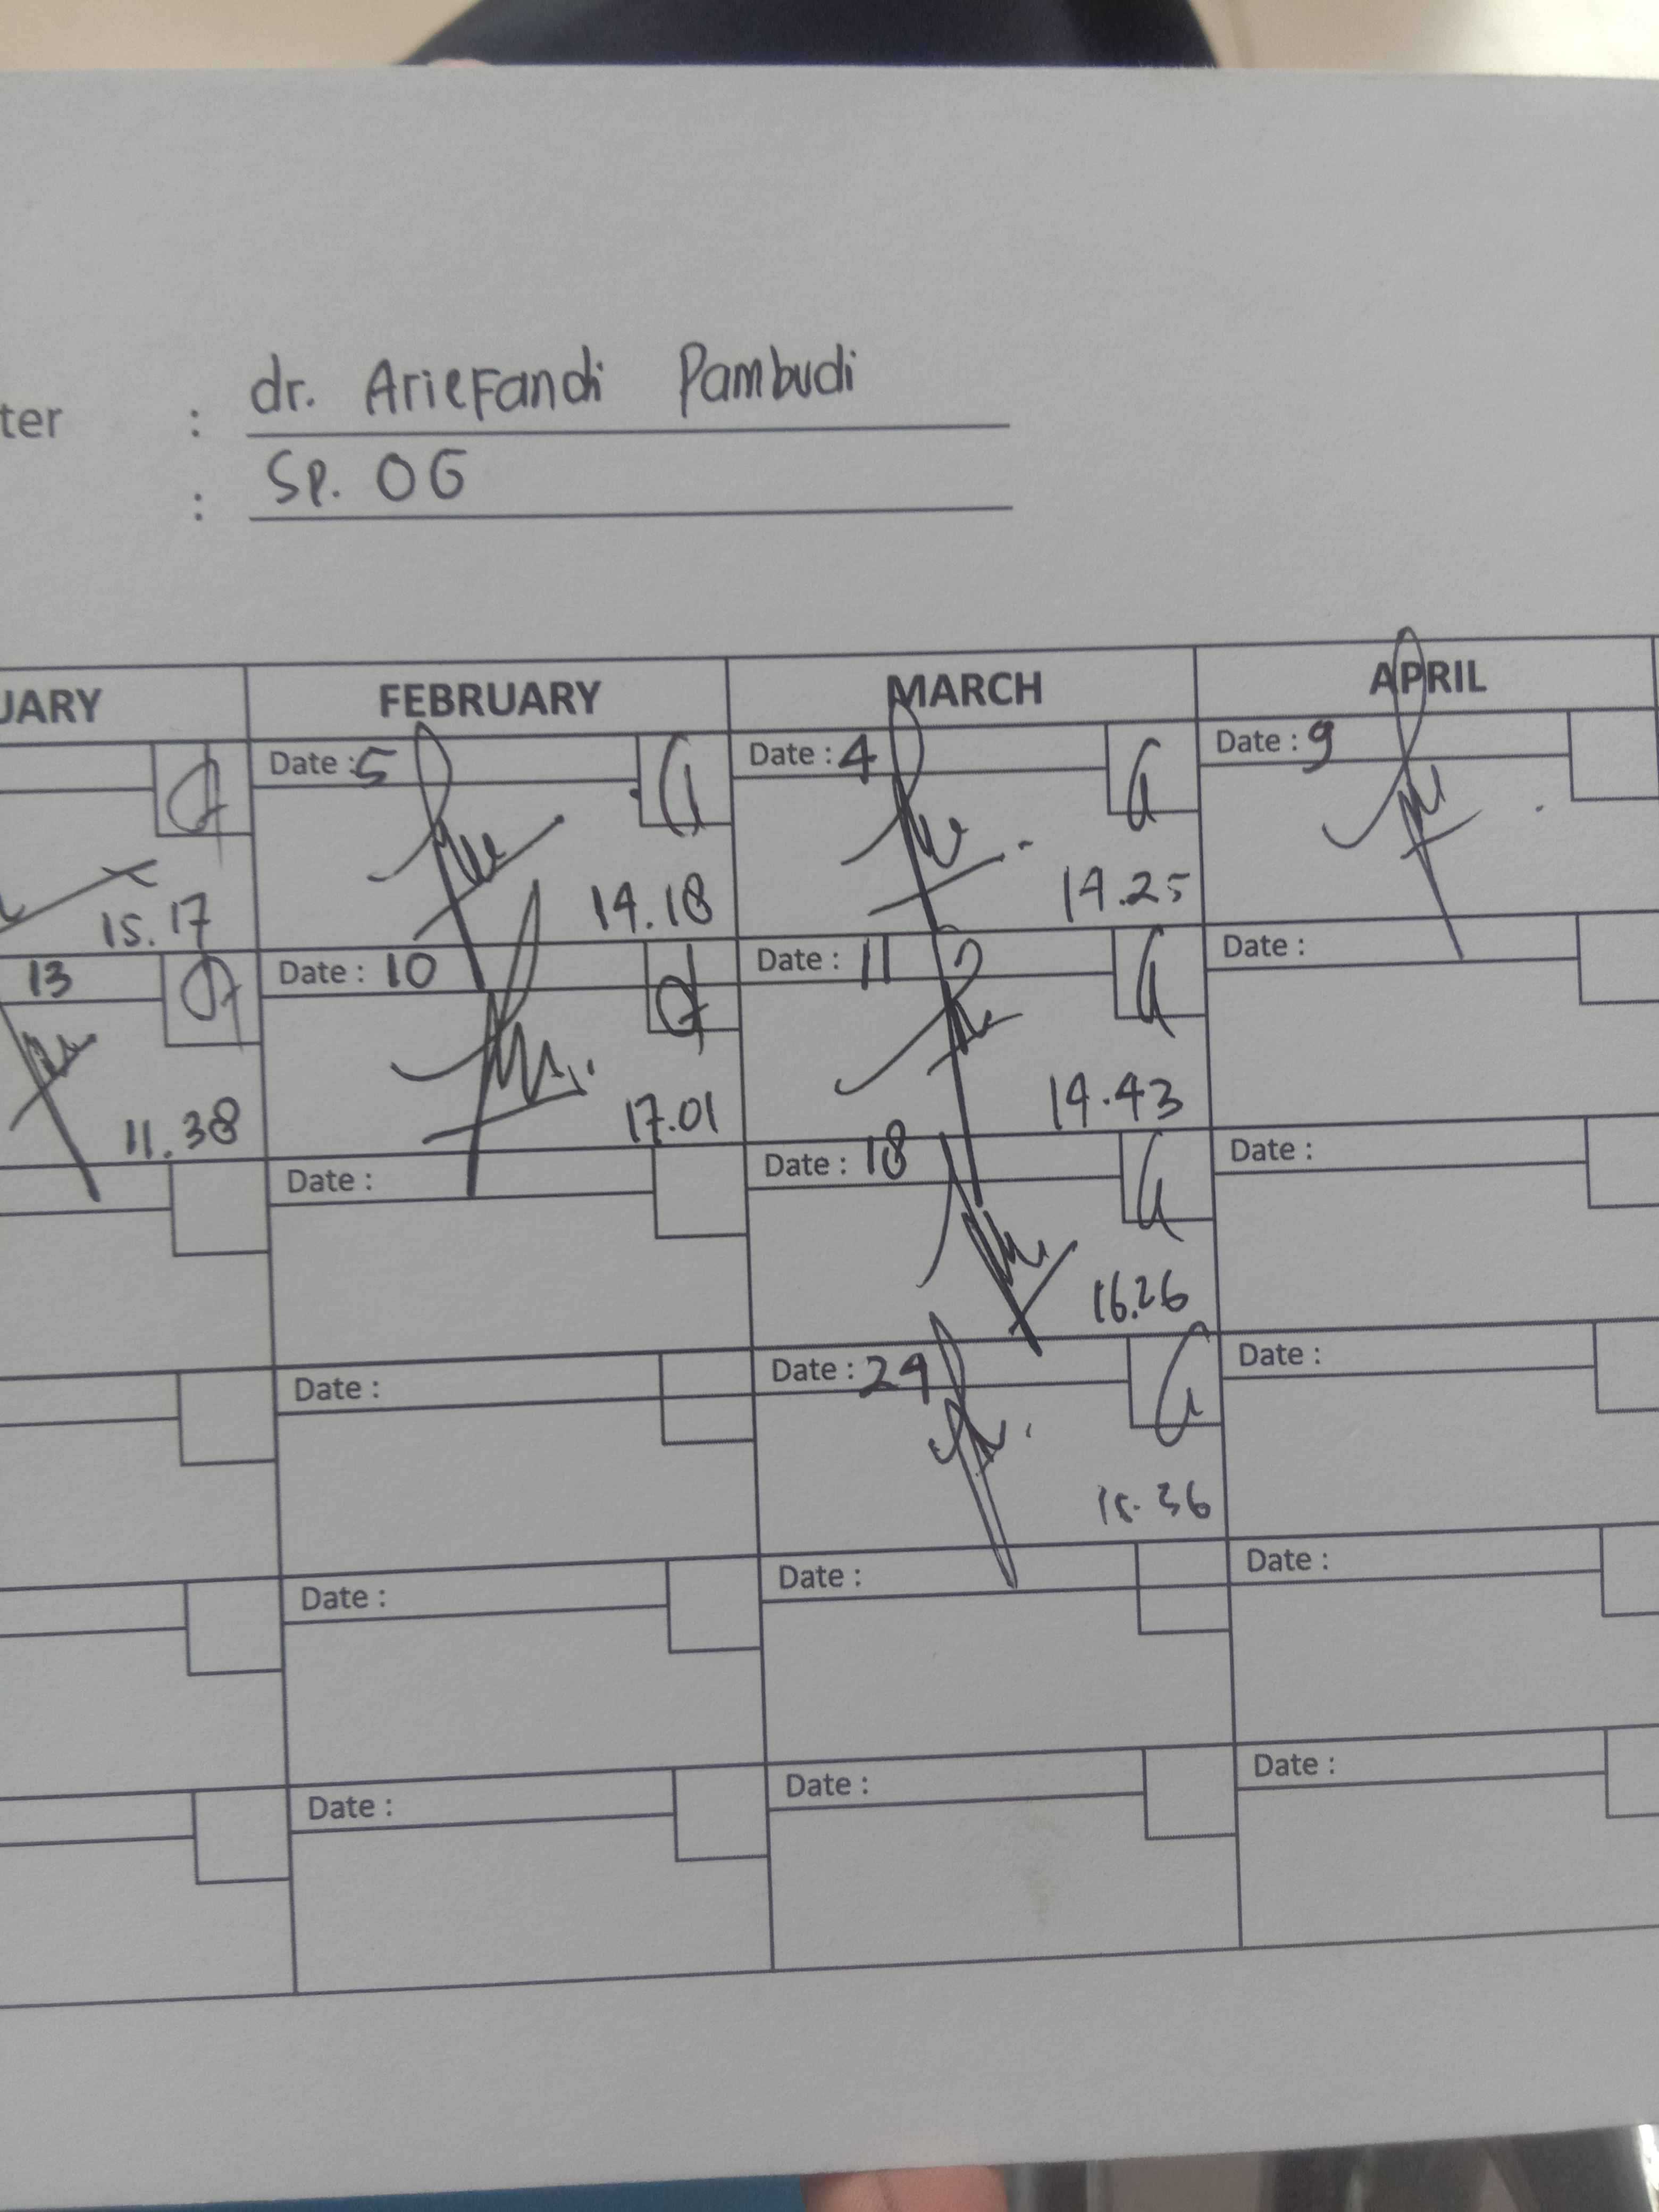 dr. Ariefandi Pambudi
ter :
Sp. OG
:
UARY FEBRUARY MARCH APRIL
Date : 5 Date : 4 Date : 9
15.17 14.18 14.25
13 Date : 10 Date : 11 Date :
11.38 17.01 14.43
Date : Date : 18 Date :
16.26
Date : Date : 24 Date :
15.36
Date : Date : Date :
Date : Date : Date :